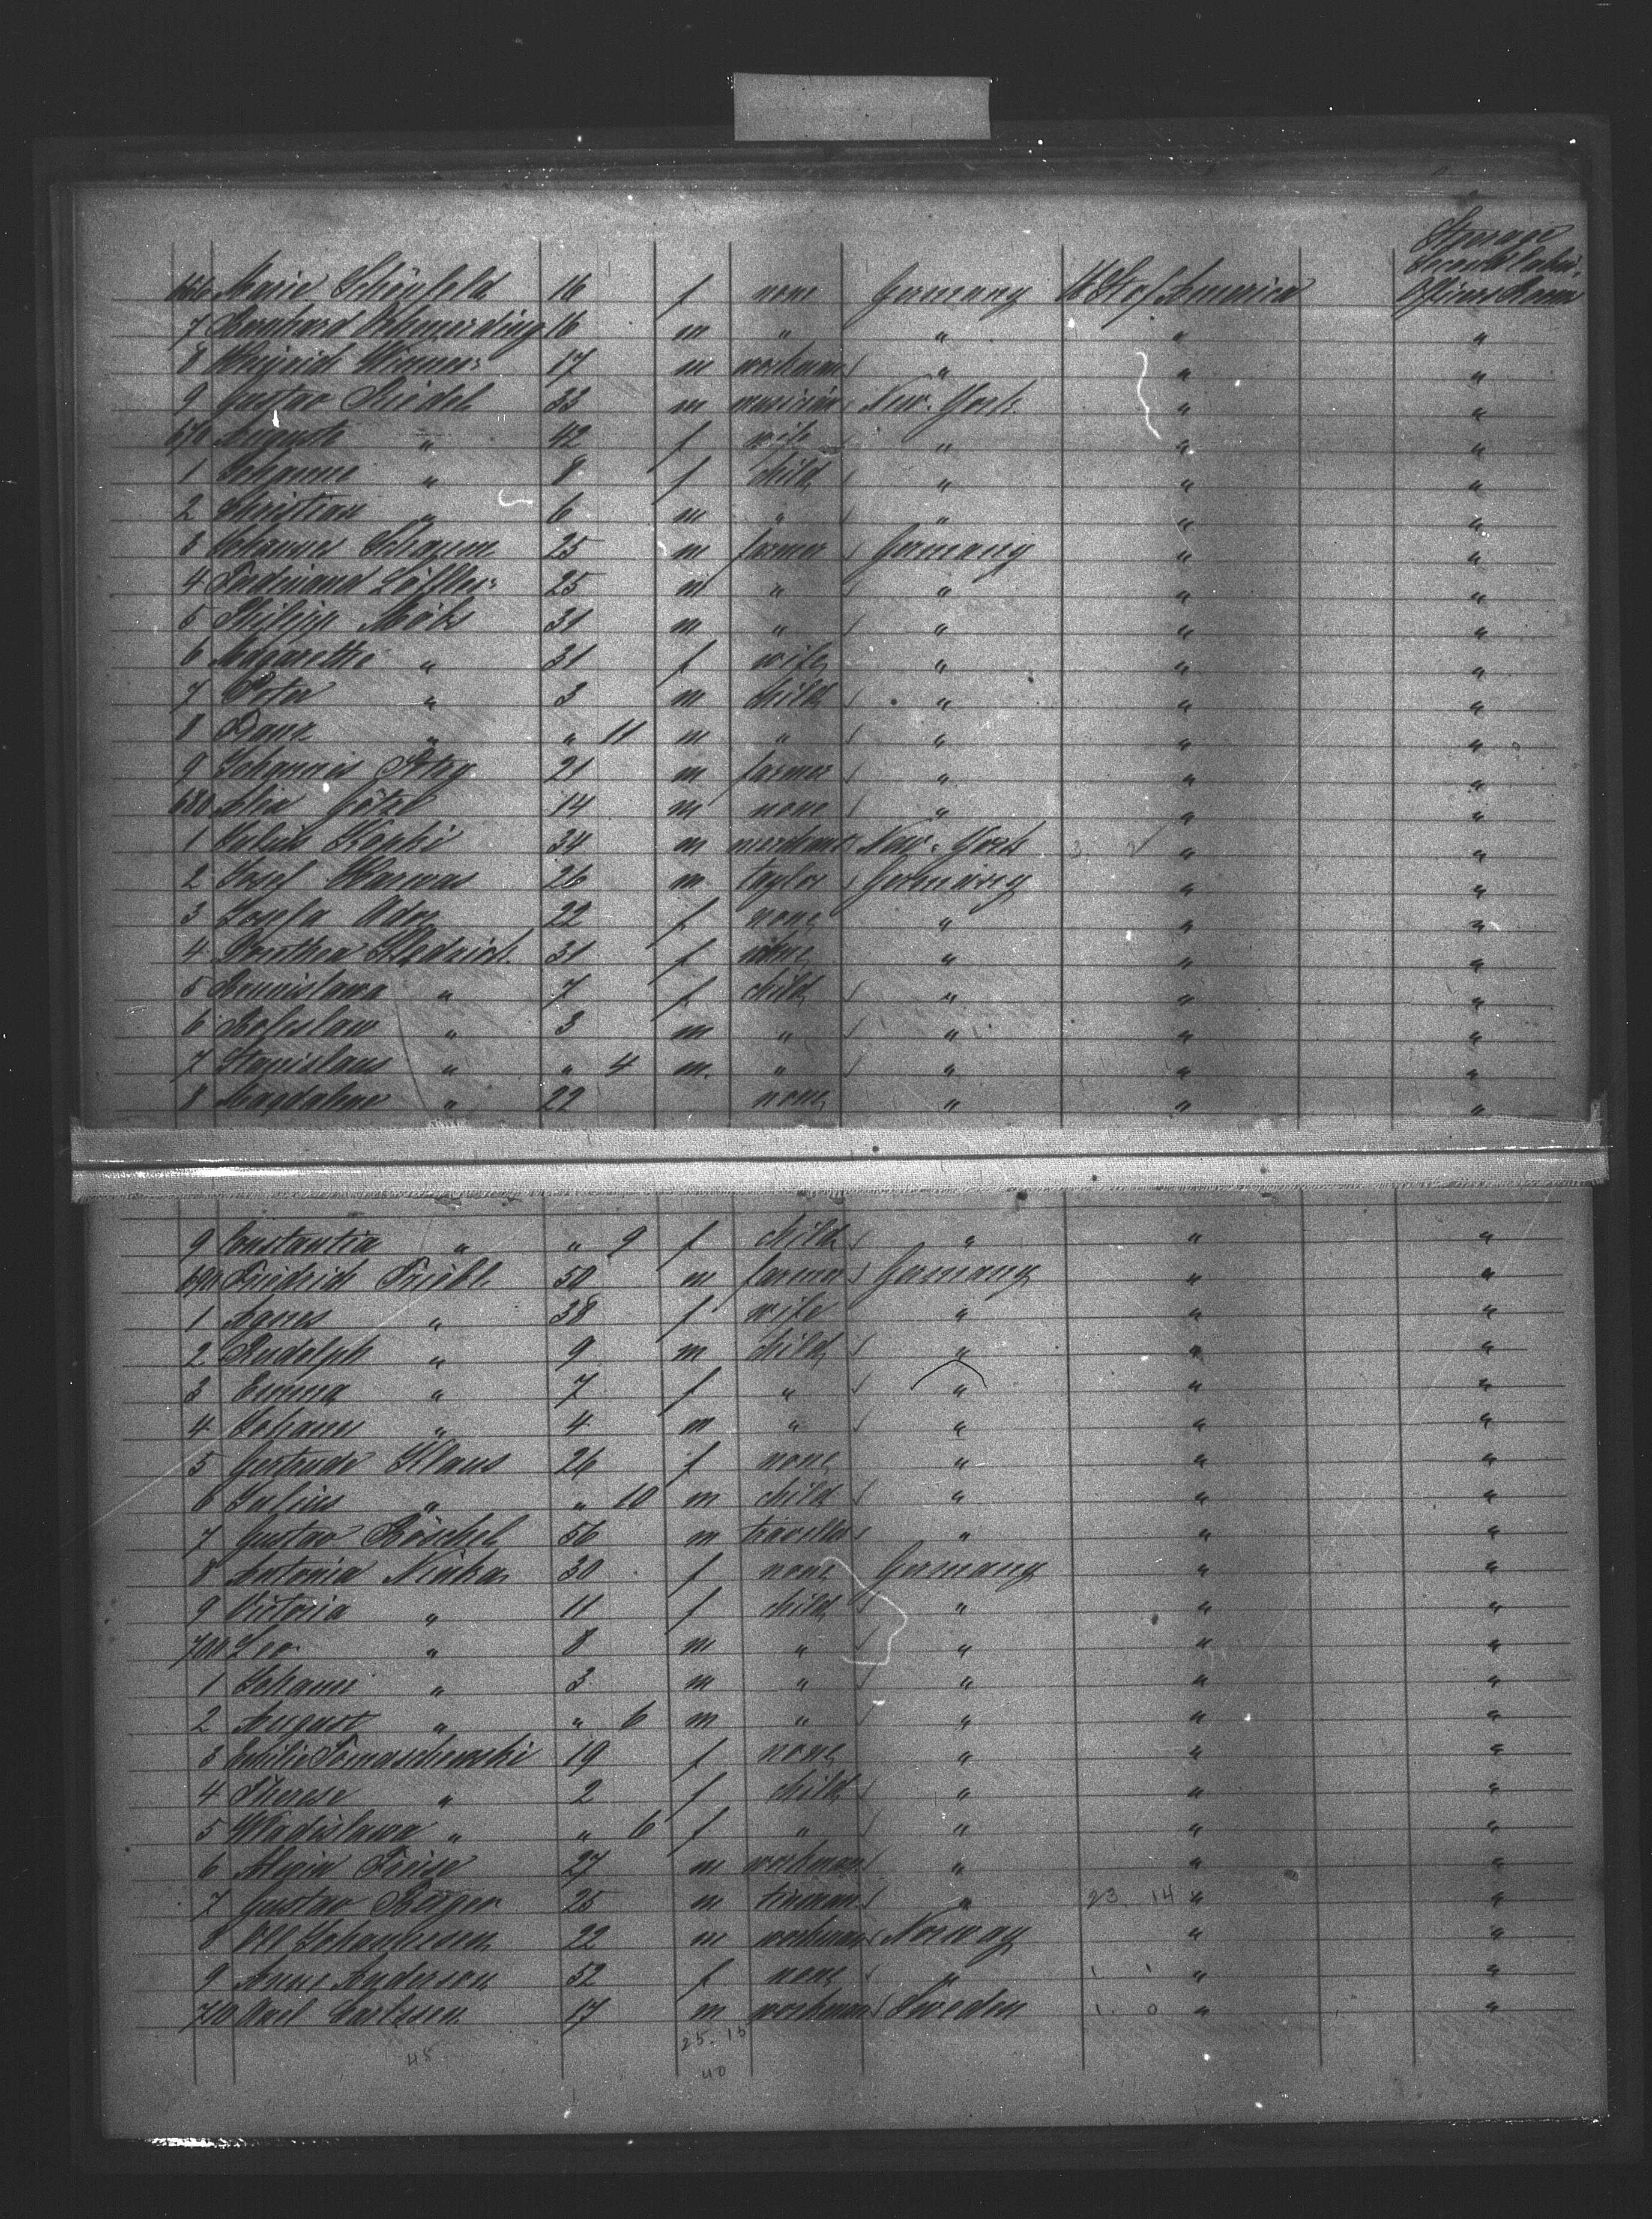 Steerage
666 Marie Schönfeld 16 f none Germany U St of America Officers Room
7 Bernhard Schmerding 16 m " " " "
8 Heinrich Wiemer 17 m workman " " "
9 Gustav Riedel 33 m musician New-York " "
670 Auguste " 42 f wife " " "
1 Johanne " 8 f child " " "
2 Christian " 6 m " " " "
3 Johannes 25 m farmer Germany " "
4 Ferdinand Löffler 25 m " " " "
5 Philipp Möbs 31 m " " " "
6 Margarethe " 31 f wife " " "
7 Peter " 3 m child " " "
8 " " 11 m " " " "
9 Johannes 21 m farmer " " "
680 Götzl 14 m none " " "
1 Julius 34 m merchant New-York 3. " "
2 Josef 26 m taylor Germany " "
3 Josefa 22 f none " " "
4 Dorothea 31 f none " " "
5 Bronislawa " 7 f child " " "
6 Boleslaw " 3 m " " " "
7 Stanislaus " " 4 m. " " " "
8 Magdalene " 22 none " " "
9 Constantia " " 9 f child " " "
690 Friedrich Triebl 50 m farmer Germany " "
1 Agnes " 38 f wife " " "
2 Rudolph " 9 m child " " "
3 Emma " 7 f " " " "
4 Johann " 4 m " " " "
5 Gertrude Klaus 26 f none " " "
6 Julius " " 10 m child " " "
7 Gustav Röschel 56 m traveller " " "
8 Antonia Ninka 30 f none Germany " "
9 Victoria " 11 f child " " "
700 Leo " 8 m " " " "
1 Johann " 3 m " " " "
2 August " " 6 m " " " "
3 Emilie Tomaschewski 19 f none " " "
4 Therese " 2 f child " " "
5 Wladislawa " " 6 f " " " "
6 Alwin 27 m workman " " "
7 Gustav Berger 25 m " 23. 14 " "
8 Johannesen 22 m workman Norway " "
9 Anne Anderson 52 f none " 1 1 " "
710 Axel Carlsson 17 m workman Sweden 1. 0 " "
25. 15
45 40